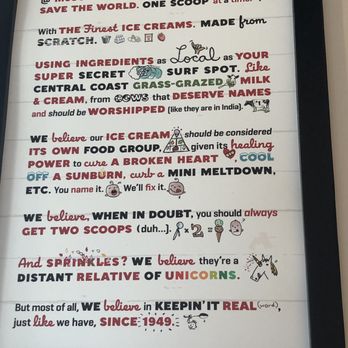 SAVE THE WORLD. ONE SCOOP at a time.
With THE Finest ICE CREAMS. MADE from
SCRATCH.
USING INGREDIENTS as Local as YOUR
SUPER SECRET SURF SPOT. Like
CENTRAL COAST GRASS-GRAZED MILK
& CREAM, from COWS that DESERVE NAMES
and should be WORSHIPPED (like they are in India).
WE believe our ICE CREAM should be considered
ITS OWN FOOD GROUP, given its healing
POWER to cure A BROKEN HEART, COOL
OFF A SUNBURN, curb a MINI MELTDOWN,
ETC. You name it. We'll fix it.
WE believe, WHEN IN DOUBT, you should always
GET TWO SCOOPS (duh...). x2=
And SPRINKLES? WE believe they're a
DISTANT RELATIVE OF UNICORNS.
But most of all, WE believe in KEEPIN' IT REAL (word),
just like we have, SINCE 1949.